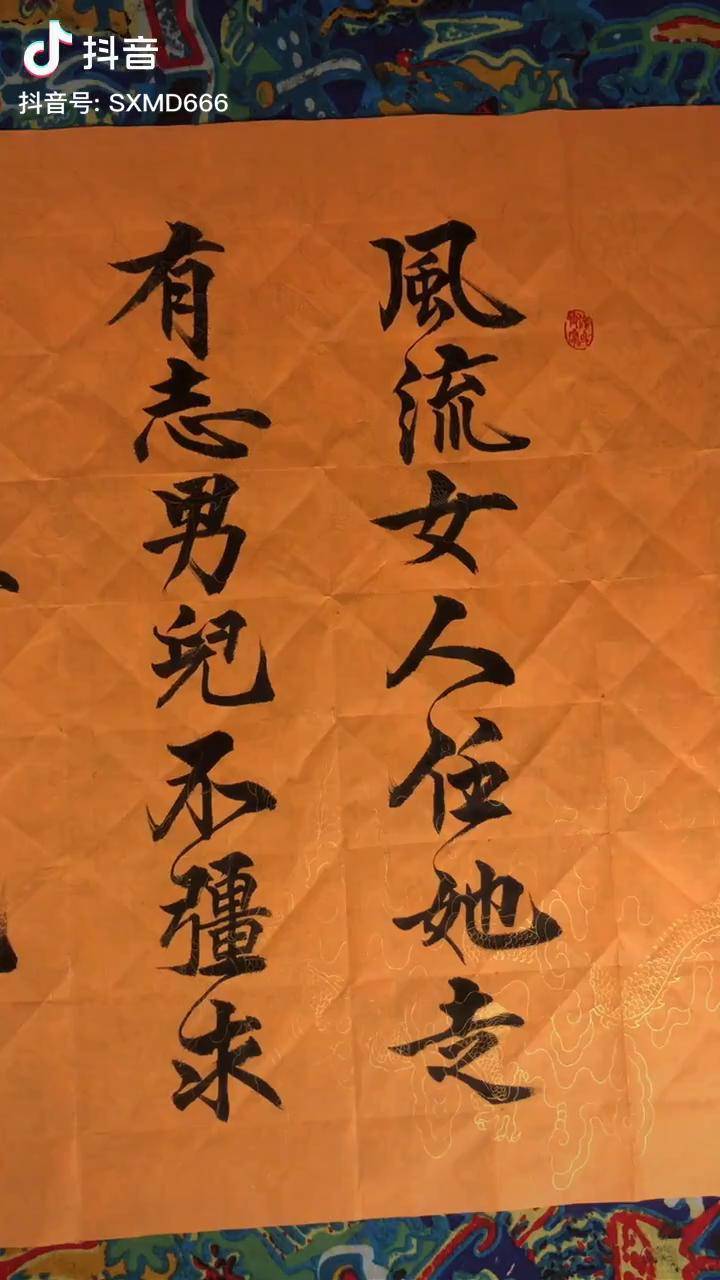 抖音
抖音号: SXMD666
風流女人任她走
有志男兒不彊求